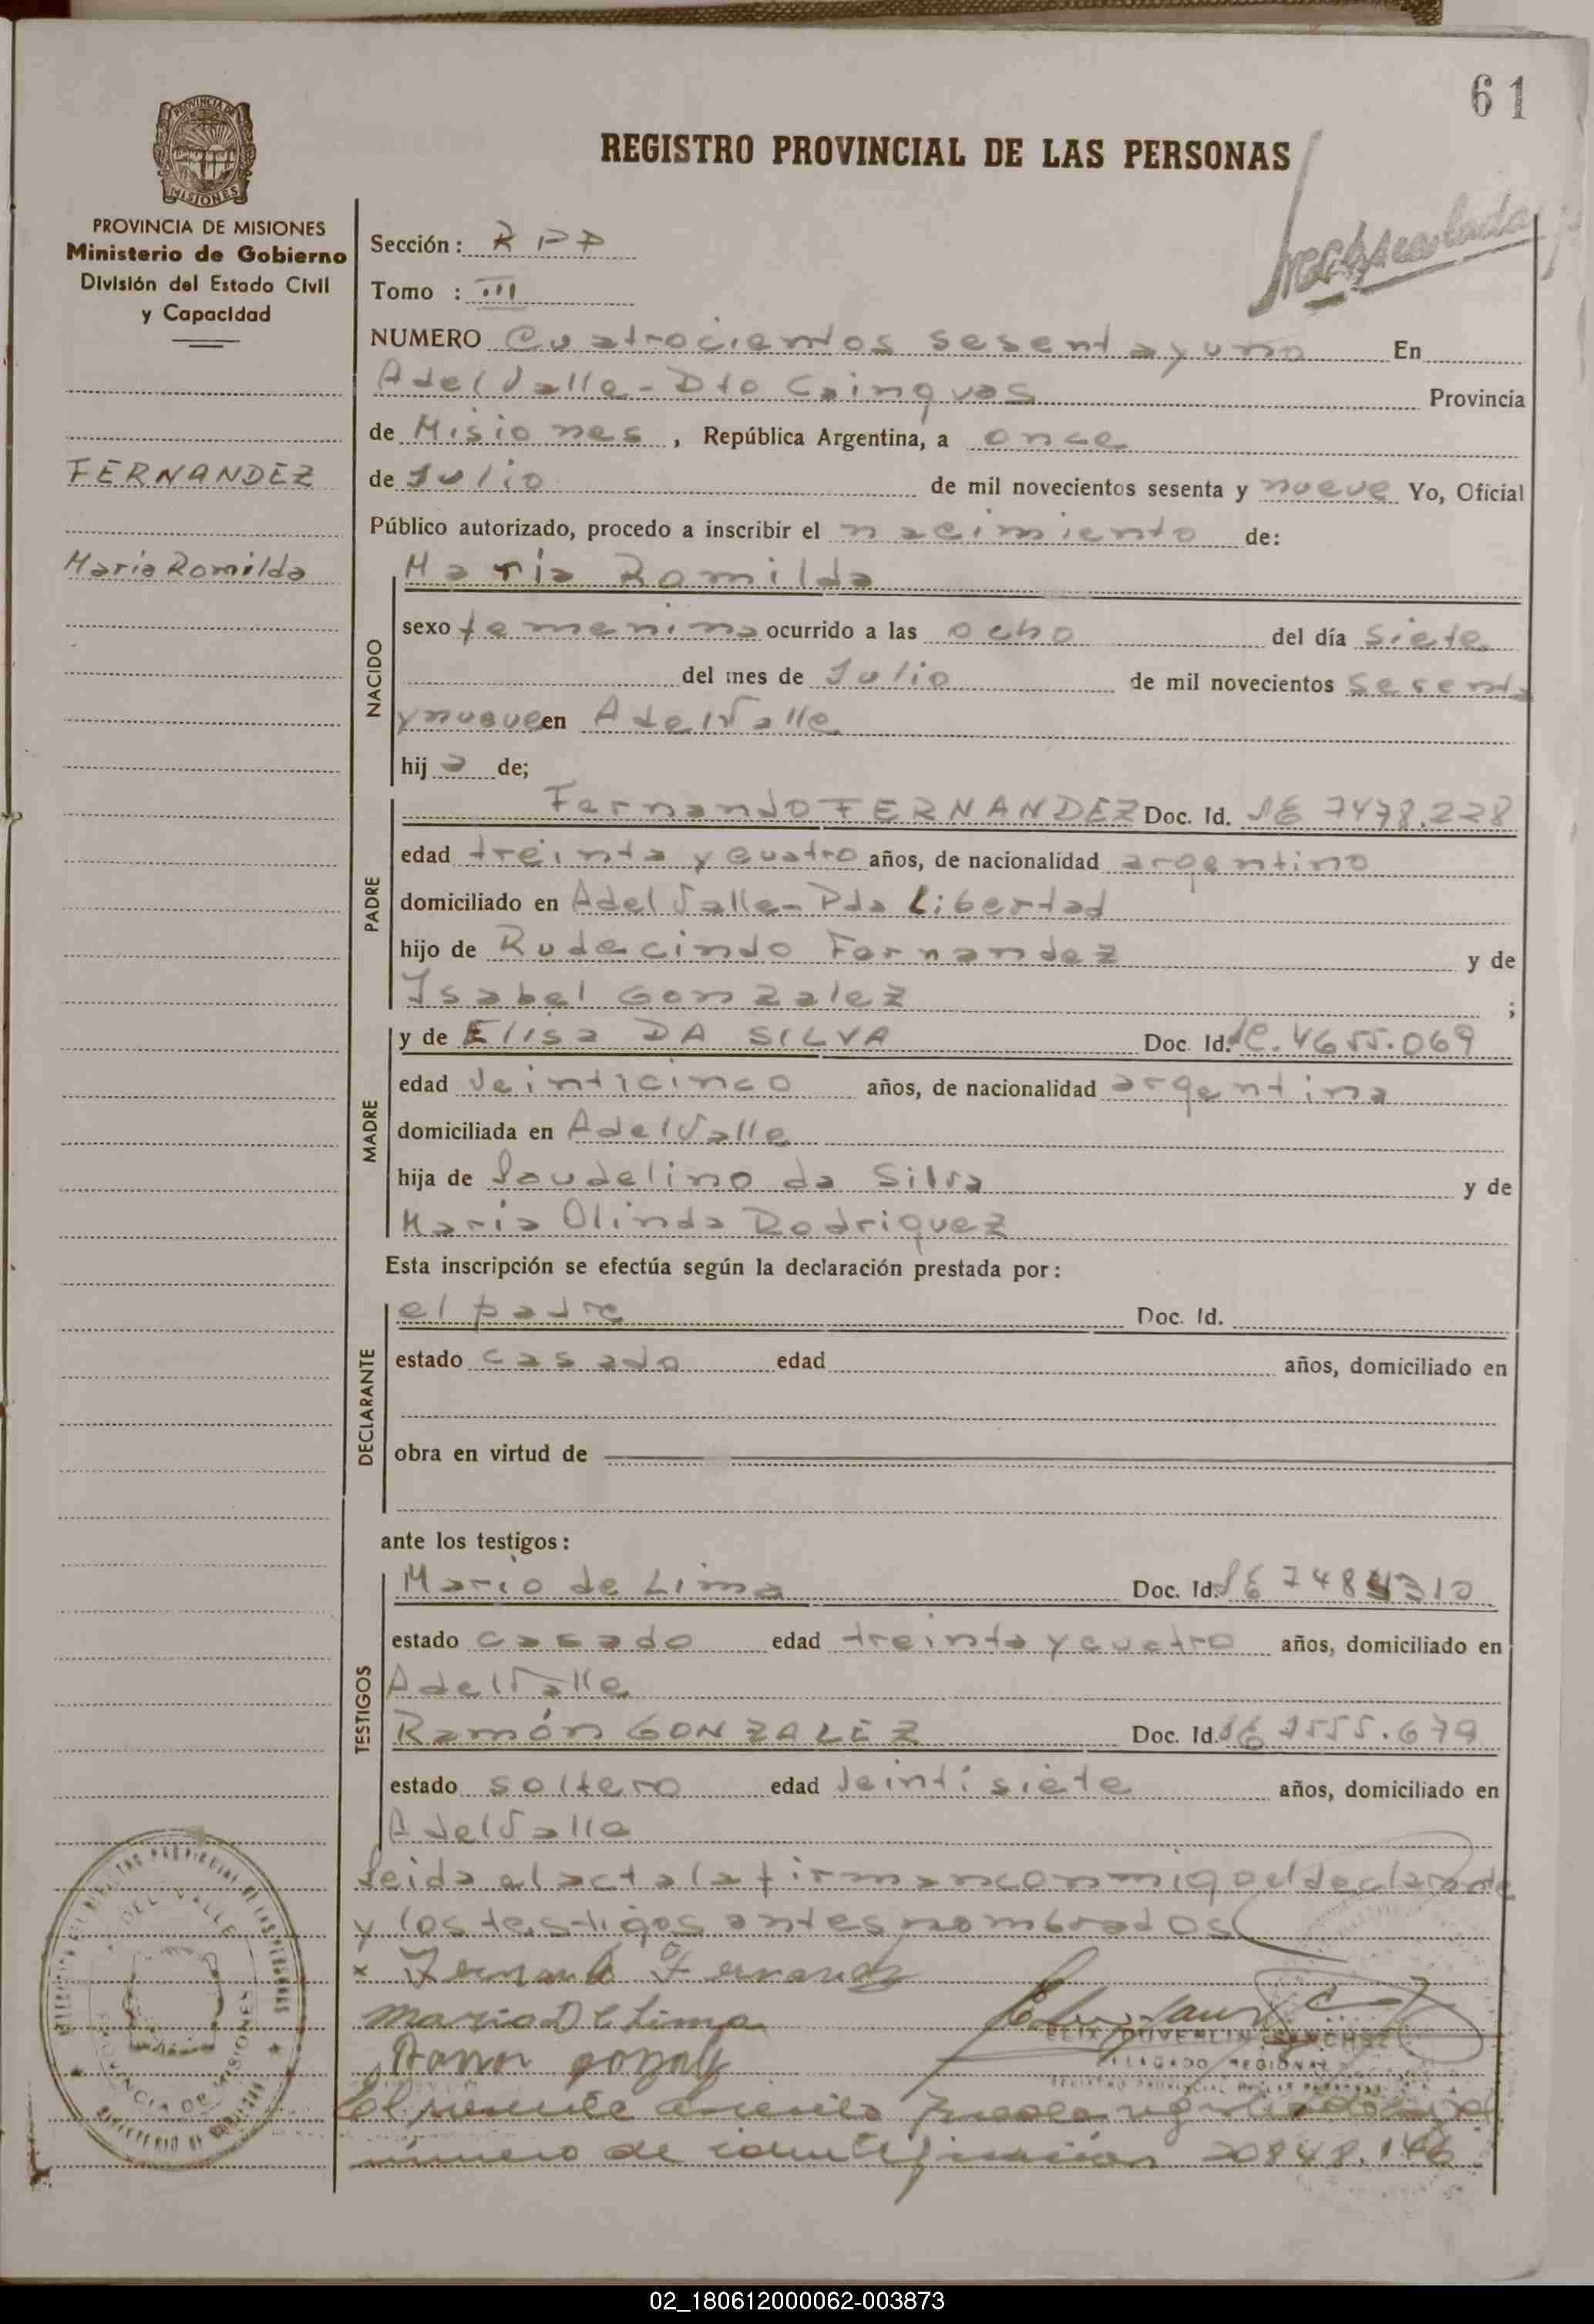 61
REGISTRO PROVINCIAL DE LAS PERSONAS
PROVINCIA DE MISIONES
MISIONES
PROVINCIA DE MISIONES
Ministerio de Gobierno
División del Estado Civil
y Capacidad
FERNANDEZ
Maria Romilda
Sección: RPP
Tomo : III
NUMERO Cuatrocientos sesenta y uno En
A del Valle - Dto Cainguas Provincia
de Misiones, República Argentina, a once
de Julio de mil novecientos sesenta y nueve Yo, Oficial
Público autorizado, procedo a inscribir el nacimiento de:
NACIDO
Maria Romilda
sexo femenino ocurrido a las ocho del día siete
del mes de Julio de mil novecientos sesenta
y nueve en A del Valle
hij a de;
PADRE
Fernando FERNANDEZ Doc. Id. LE 7478.228
edad treinta y cuatro años, de nacionalidad argentino
domiciliado en A del Valle - Pda Libertad
hijo de Rudecindo Fernandez y de
Isabel Gonzalez ;
MADRE
y de Elisa DA SILVA Doc. Id. LC. 4655.069
edad Veinticinco años, de nacionalidad argentina
domiciliada en A del Valle
hija de Laudelino da Silva y de
Maria Olinda Rodriguez
Esta inscripción se efectúa según la declaración prestada por:
DECLARANTE
el padre Doc. Id.
estado casado edad años, domiciliado en
obra en virtud de
ante los testigos:
TESTIGOS
Mario de Lima Doc. Id. LE
estado casado edad treinta y cuatro años, domiciliado en
A del Valle
Ramón GONZALEZ Doc. Id. LE 7555.679
estado soltero edad Veintisiete años, domiciliado en
A del Valle
Leida el acta la firman conmigo el declarante
y los testigos antes nombrados
x Fernando Fernandez
Mario De Lima
Ramon gonzalez
FELIX DUVERLIN SANCHEZ
DELEGADO REGIONAL
REGISTRO PROVINCIAL DE LAS PERSONAS
DEL VALLE
PROVINCIA DE MISIONES
El presente
número de identificación 20848.146
02_180612000062-003873